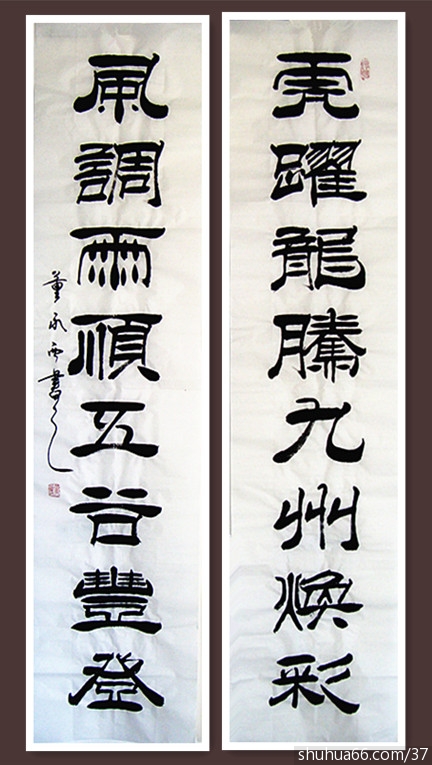 虎躍龍騰九州煥彩
風調雨順五谷豐登
董承西書
shuhua66.com/37